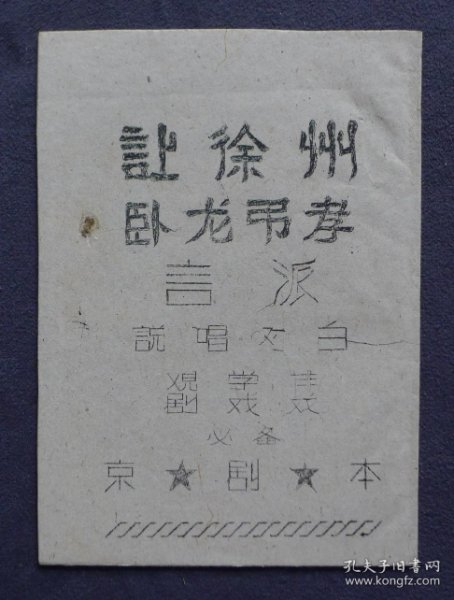 让徐州
卧龙吊孝
言派
説唱对白
观学
剧戏
必备
京★剧★本
孔夫子旧书网
www.kongfz.com